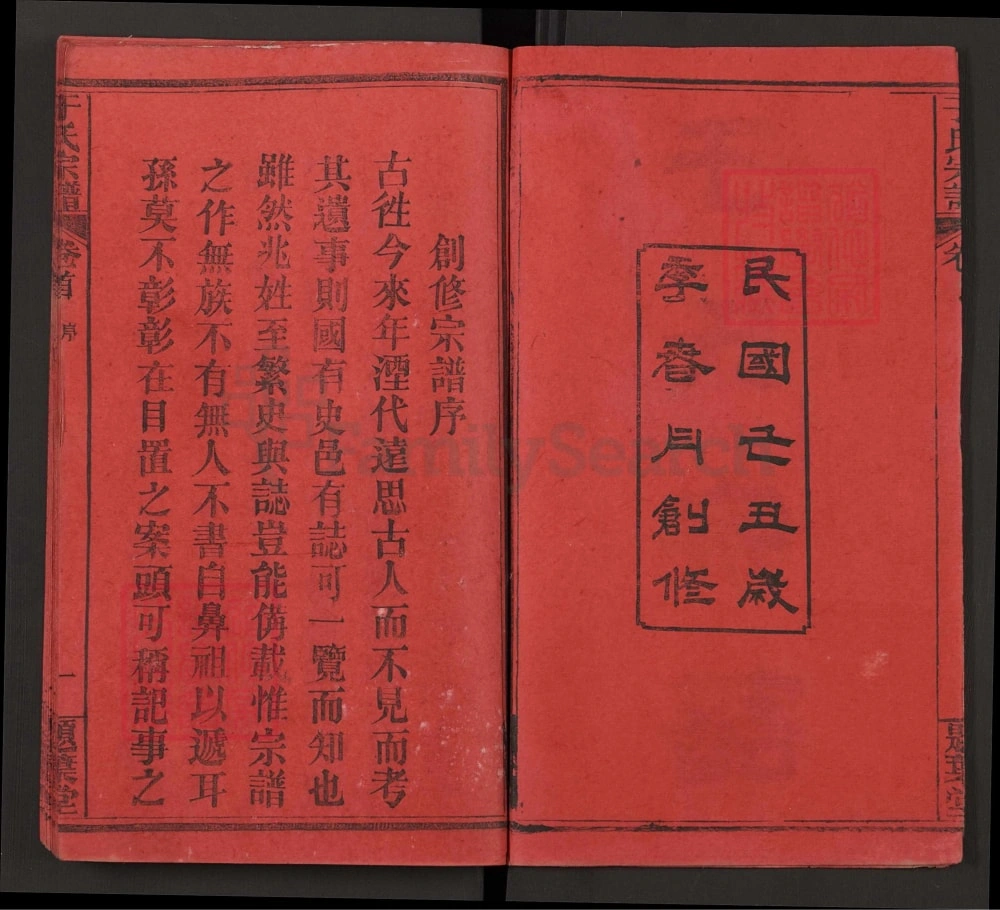 民國乙丑歲
季春月創修
創修宗譜序
古徃今來年湮代遠思古人而不見而考
其遺事則國有史邑有誌可一覽而知也
雖然兆姓至繁史與誌豈能俻載惟宗譜
之作無族不有無人不書自鼻祖以遞耳
孫莫不彰彰在目置之案頭可稱記事之
于氏宗譜
卷首
序
一
FamilySearch